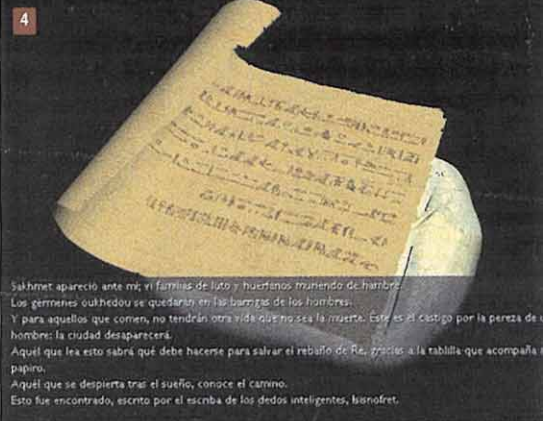 4
Sakhmet apareció ante mí; vi familias de luto y huérfanos muriendo de hambre.
Los gérmenes oukhedou se quedarán en las barrigas de los hombres.
Y para aquellos que comen, no tendrán otra vida que no sea la muerte. Éste es el castigo por la pereza de
hombre: la ciudad desaparecerá.
Aquél que lea esto sabrá qué debe hacerse para salvar el rebaño de Re, gracias a la tablilla que acompaña
papiro.
Aquél que se despierta tras el sueño, conoce el camino.
Esto fue encontrado, escrito por el escriba de los dedos inteligentes, Isisnofret.